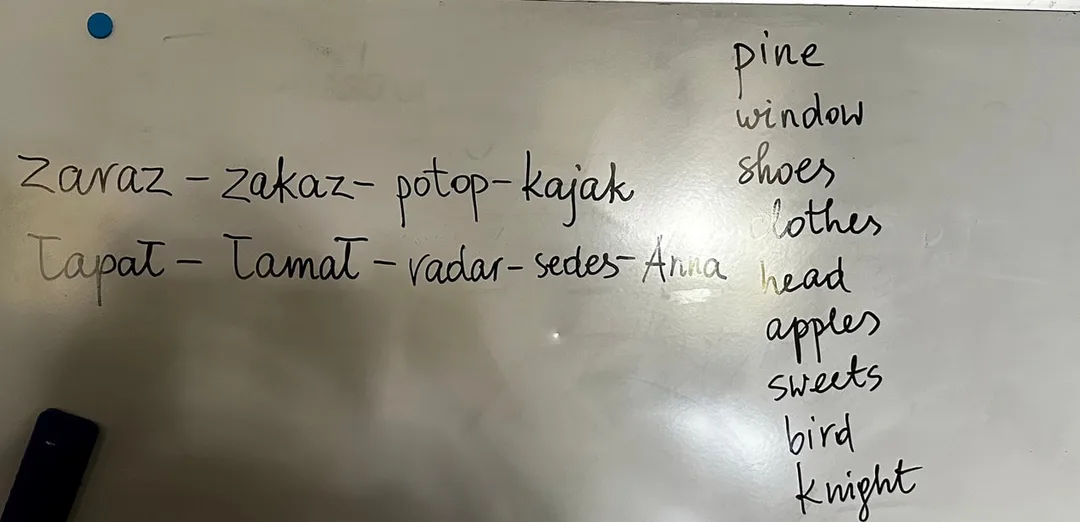 zaraz - zakaz - potop - kajak
łapał - łamał - radar - sedes - Anna
pine
window
shoes
clothes
head
apples
sweets
bird
knight